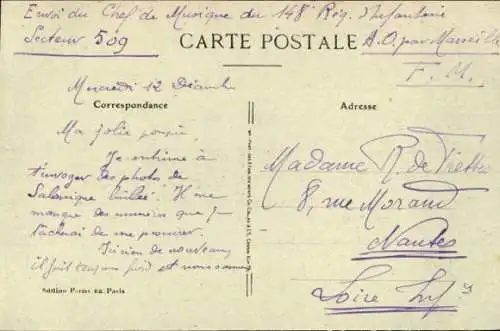 Envoi du Chef de Musique du 148e Rég. d'Infanterie
Secteur 509
CARTE POSTALE
A.O. par Marseille
F. M.
Mercredi 12 Décembre
Correspondance
Adresse
Ma jolie poupée,
Je continue à
t'envoyer des photo de
Salonique brûlée. Il me
manque des numéros que je
tâcherai de me procurer.
Rien de nouveau,
il fait toujours froid et nous sommes
Madame R. de
8, rue Morand
Nantes
Loire Infre
Edition Parisiana, Paris